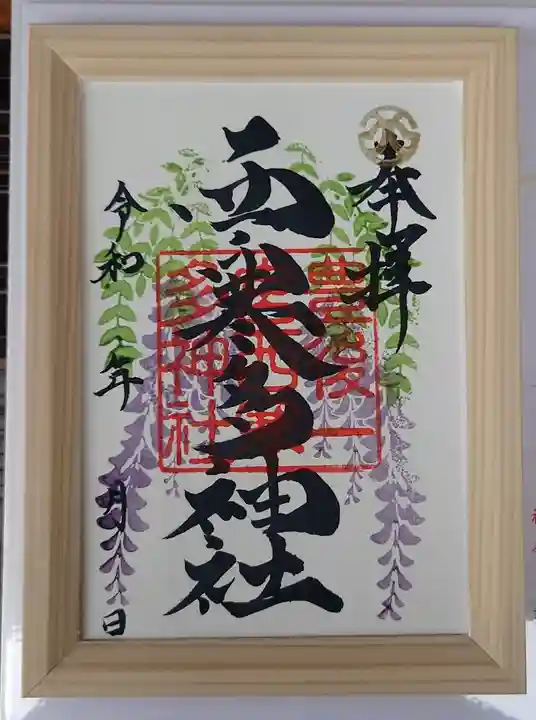 奉拝
西寒多神社
豊後一
多神社
令和 年 月 日